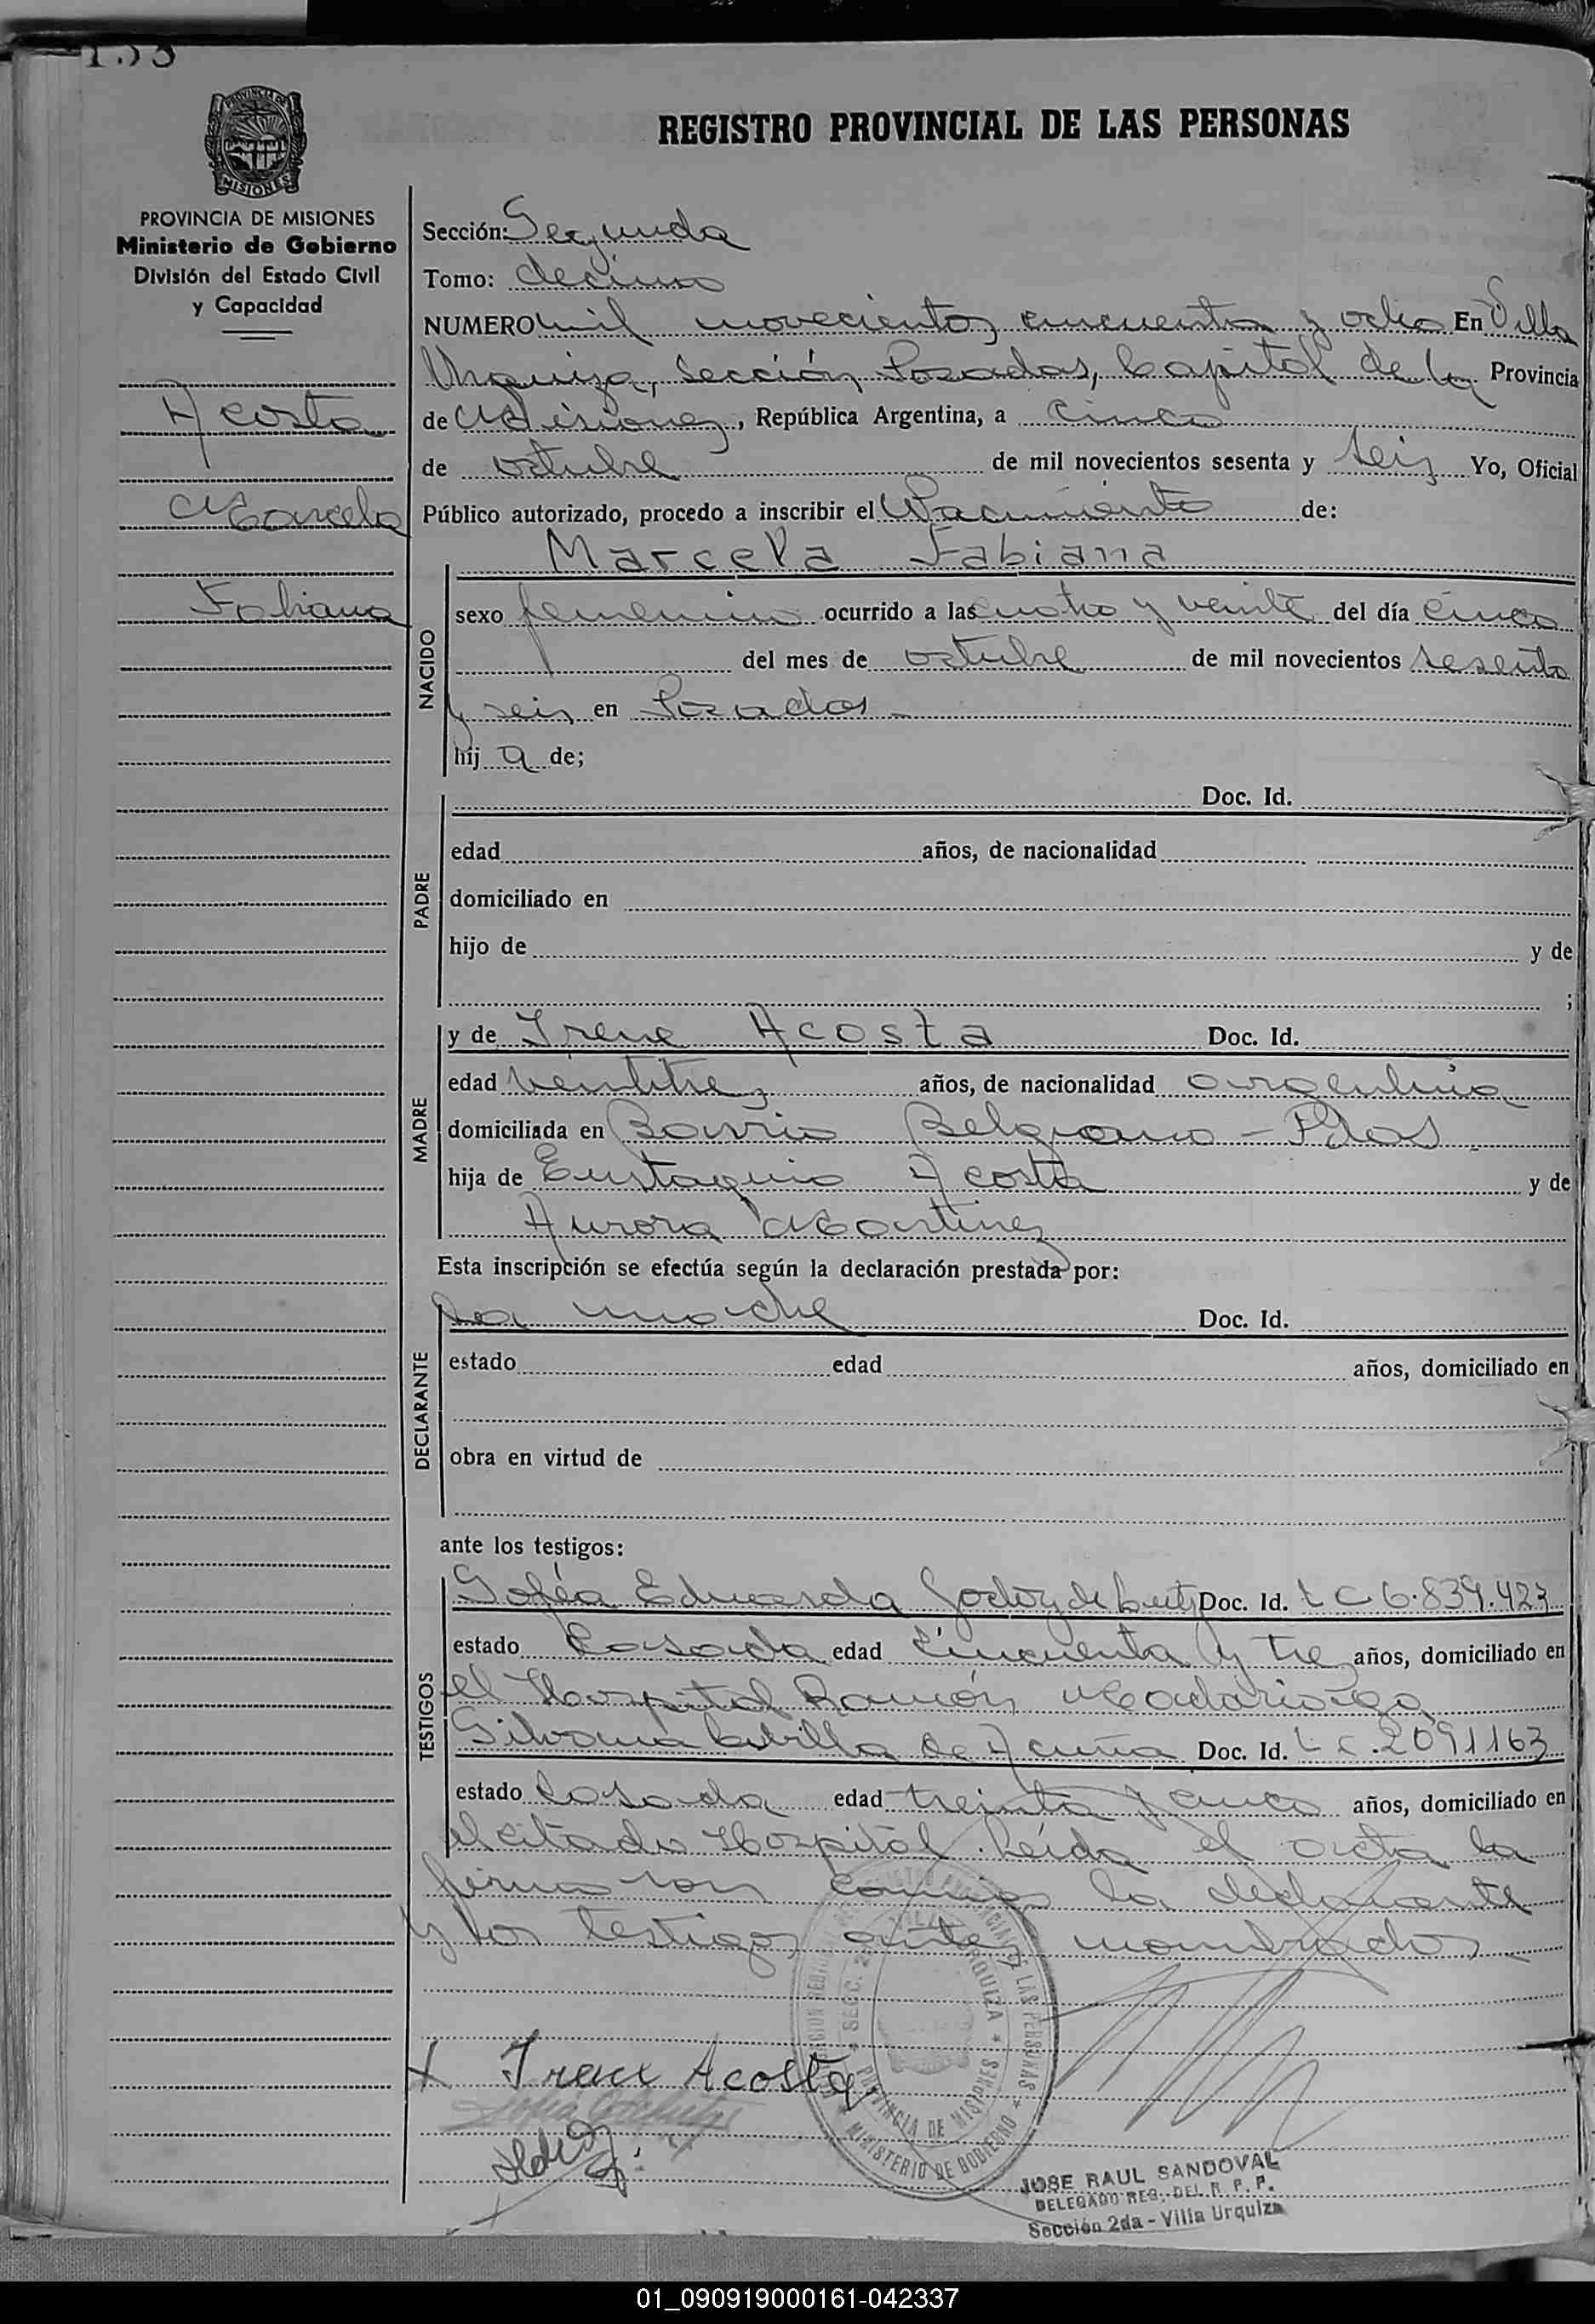 REGISTRO PROVINCIAL DE LAS PERSONAS
PROVINCIA DE MISIONES
MISIONES
PROVINCIA DE MISIONES
Ministerio de Gobierno
División del Estado Civil
y Capacidad
Acosta
Marcela
Fabiana
Sección: Segunda
Tomo: decimo
NUMERO mil novecientos cincuenta y ocho En Villa
Urquiza, Sección Posadas, Capital de la Provincia
de Misiones, República Argentina, a cinco
de octubre de mil novecientos sesenta y seis Yo, Oficial
Público autorizado, procedo a inscribir el Nacimiento de:
Marcela Fabiana
NACIDO
sexo femenino ocurrido a las cuatro y veinte del día cinco
del mes de octubre de mil novecientos sesenta
y seis en Posadas
hij a de;
PADRE
Doc. Id.
edad años, de nacionalidad
domiciliado en
hijo de y de
;
MADRE
y de Irene Acosta Doc. Id.
edad veintitres años, de nacionalidad argentina
domiciliada en Barrio Belgrano - Pdas
hija de Eustaquio Acosta y de
Aurora Martinez
Esta inscripción se efectúa según la declaración prestada por:
DECLARANTE
La madre Doc. Id.
estado edad años, domiciliado en
obra en virtud de
ante los testigos:
TESTIGOS
Sofía Eduarda Godoy de Doc. Id. L C 6.839.423
estado Casada edad cincuenta y tres años, domiciliado en
el Hospital Ramón Madariaga
Silvana de Acuña Doc. Id. L C. 2091163
estado Casada edad treinta y cinco años, domiciliado en
el citado Hospital. Leída el acta la
firmaron conmigo la declarante
y los testigos antes nombrados
X Irene Acosta
MINISTERIO DE GOBIERNO
PROVINCIA DE MISIONES
JOSE RAUL SANDOVAL
DELEGADO REG. DEL R. P. P.
Sección 2da - Villa Urquiza
01_090919000161-042337